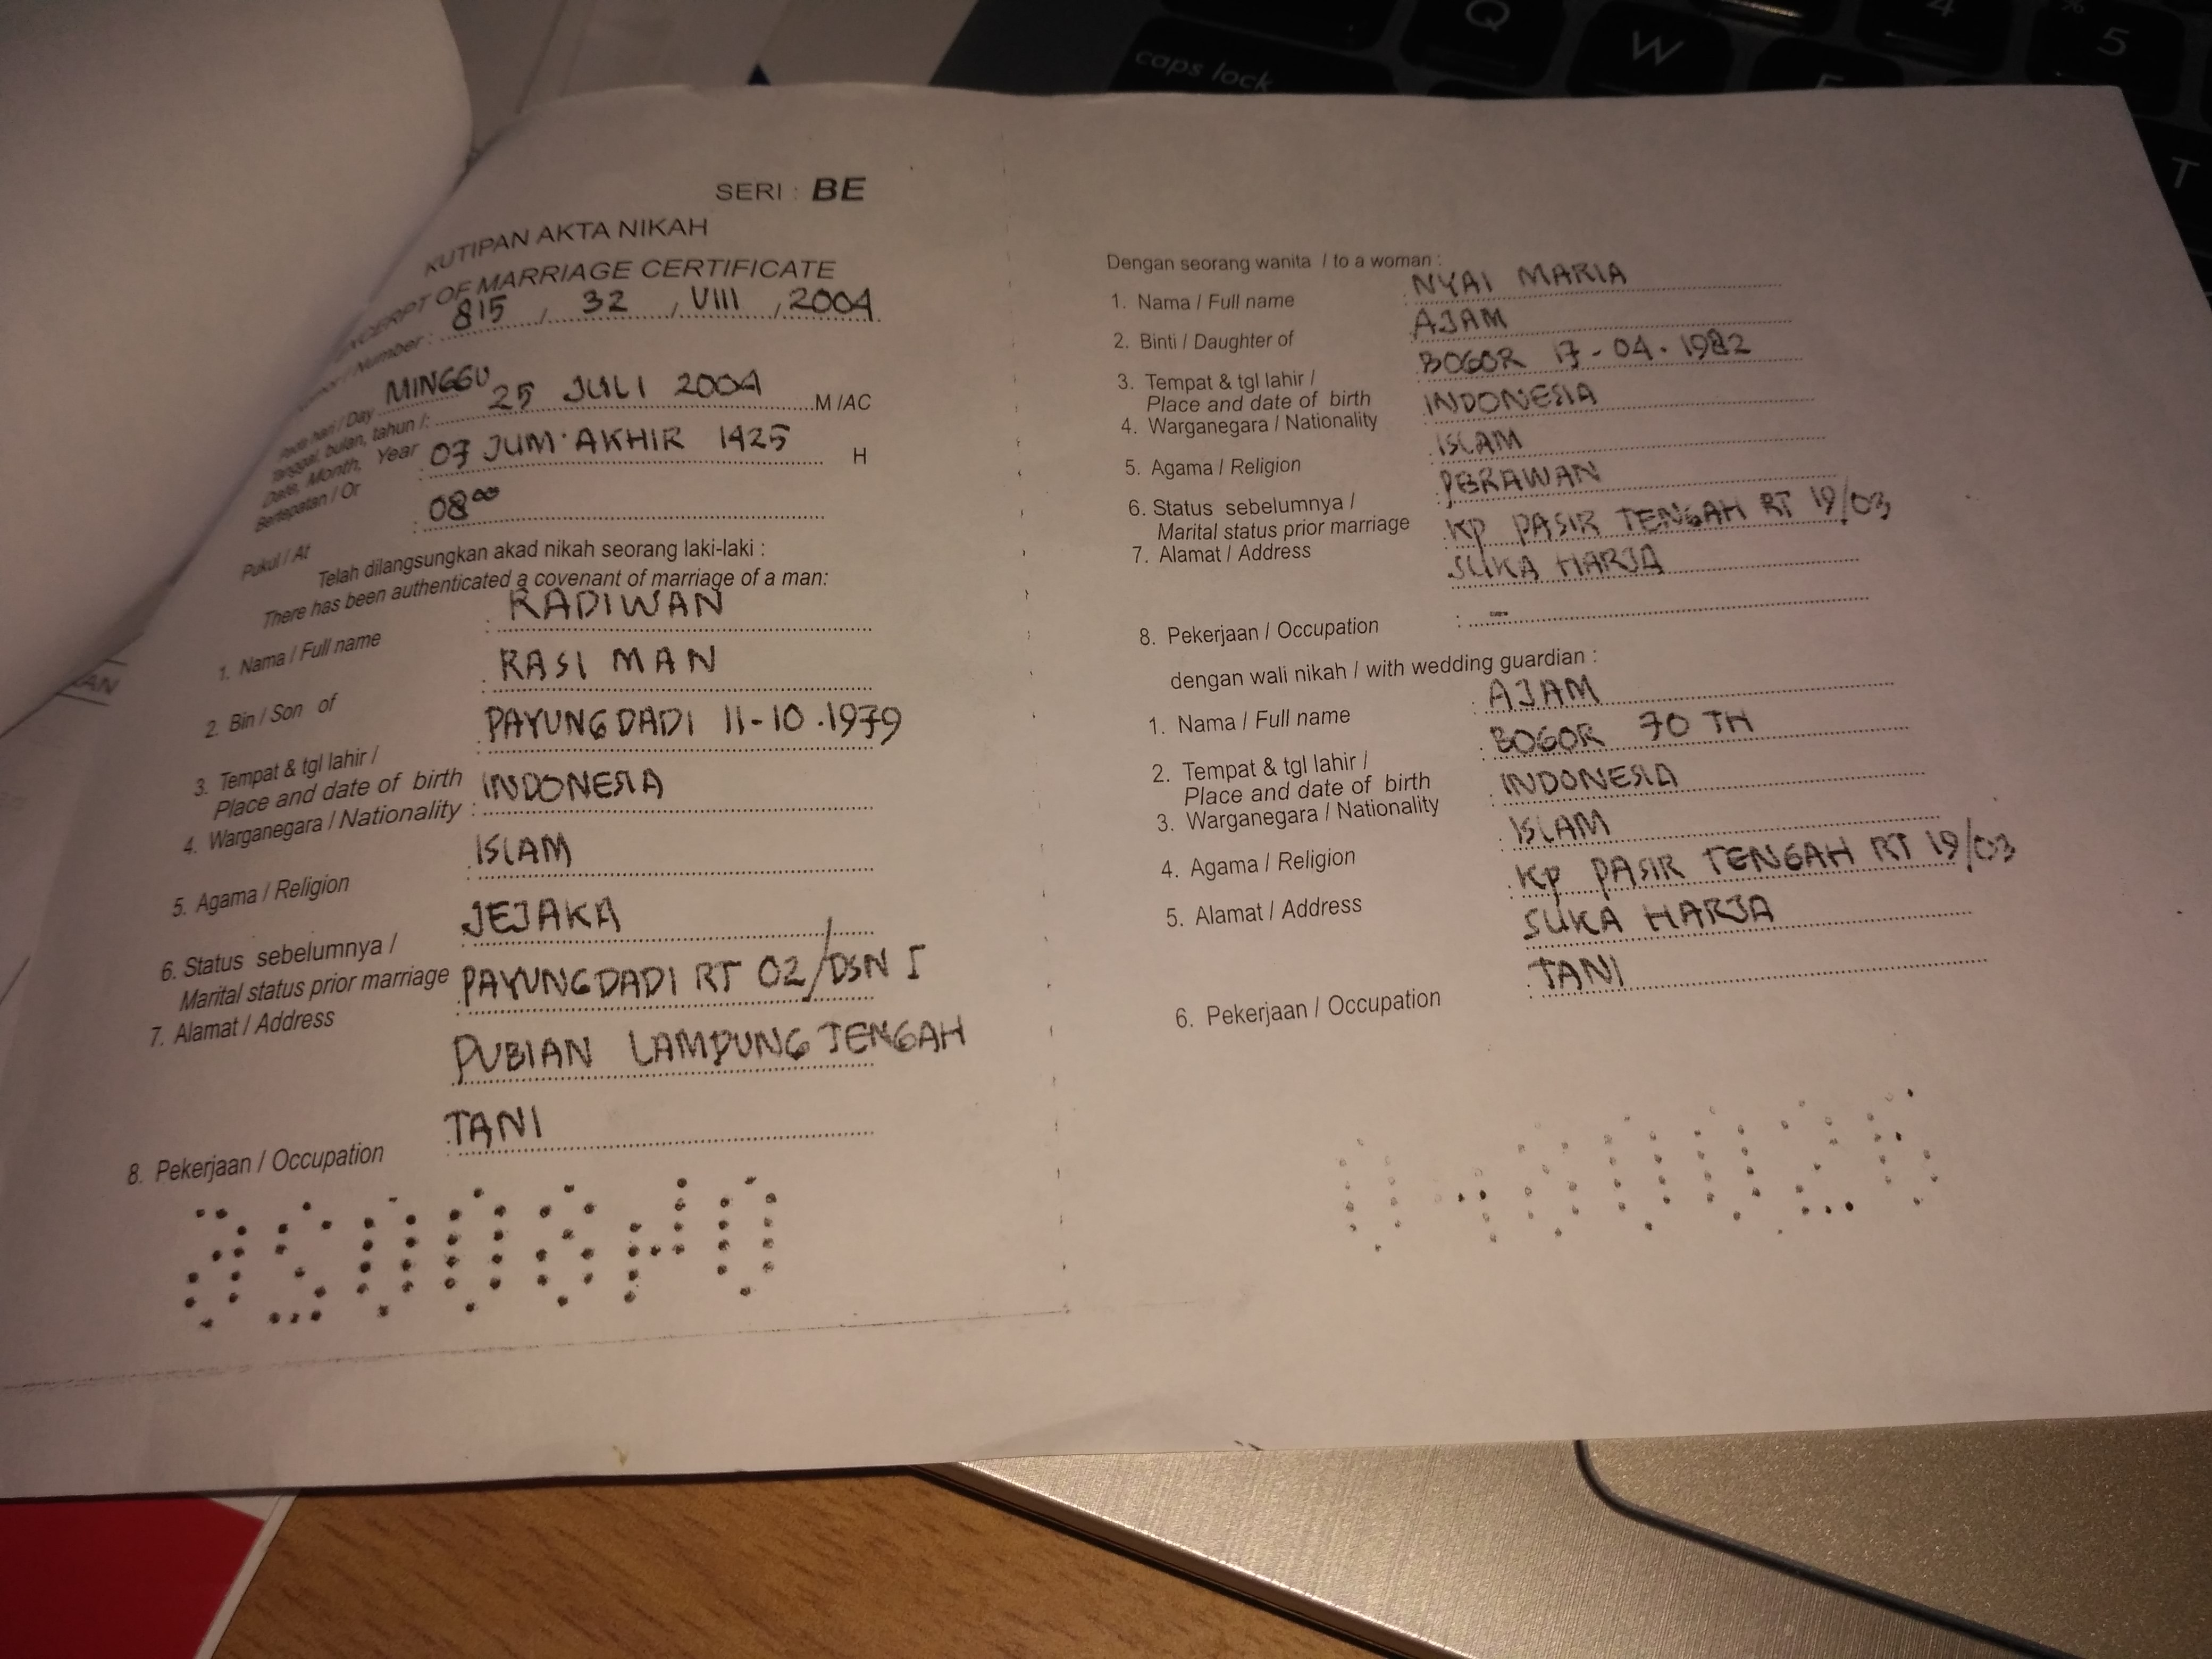 SERI : BE
KUTIPAN AKTA NIKAH
EXCERPT OF MARRIAGE CERTIFICATE
Nomor / Number : 815 / 32 / VIII / 2004
Pada hari / Day MINGGU
Tanggal, bulan, tahun /: 25 JULI 2004 M /AC
Date, Month, Year
Bertepatan / Or : 07 JUM. AKHIR 1425 H
Pukul / At : 08 00
Telah dilangsungkan akad nikah seorang laki-laki :
There has been authenticated a covenant of marriage of a man:
1. Nama / Full name : RADIWAN
2. Bin / Son of : RASI MAN
3. Tempat & tgl lahir / : PAYUNGDADI 11-10.1979
Place and date of birth
4. Warganegara / Nationality : INDONESIA
5. Agama / Religion : ISLAM
6. Status sebelumnya / : JEJAKA
Marital status prior marriage
7. Alamat / Address : PAYUNGDADI RT 02/DSN I
PUBIAN LAMPUNG TENGAH
8. Pekerjaan / Occupation : TANI
Dengan seorang wanita / to a woman :
1. Nama / Full name : NYAI MARIA
2. Binti / Daughter of : AJAM
3. Tempat & tgl lahir / : BOGOR 17-04.1982
Place and date of birth
4. Warganegara / Nationality : INDONESIA
5. Agama / Religion : ISLAM
6. Status sebelumnya / : PERAWAN
Marital status prior marriage
7. Alamat / Address : KP PASIR TENGAH RT 19/03
SUKA HARJA
8. Pekerjaan / Occupation : -
dengan wali nikah / with wedding guardian :
1. Nama / Full name : AJAM
2. Tempat & tgl lahir / : BOGOR 70 TH
Place and date of birth
3. Warganegara / Nationality : INDONESIA
4. Agama / Religion : ISLAM
5. Alamat / Address : KP PASIR TENGAH RT 19/03
SUKA HARJA
6. Pekerjaan / Occupation : TANI
caps lock
Q
W
4
%
5
T